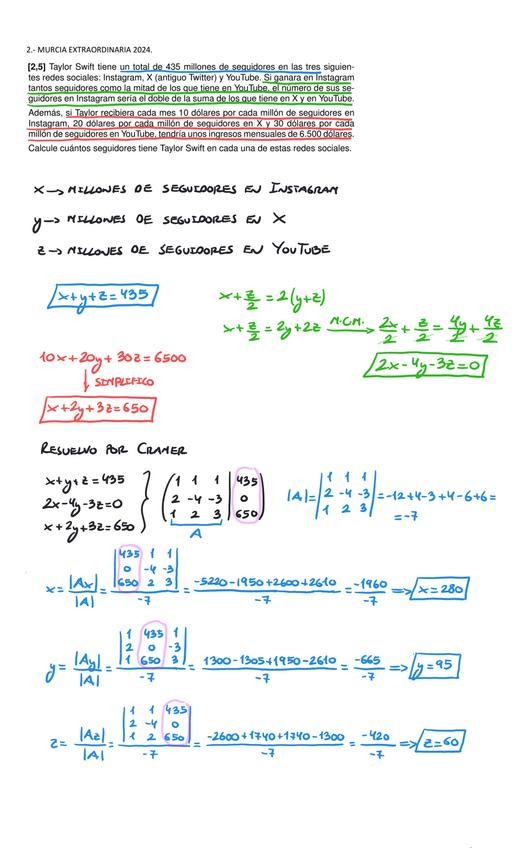 2.- MURCIA EXTRAORDINARIA 2024.
[2,5] Taylor Swift tiene un total de 435 millones de seguidores en las tres siguien-
tes redes sociales: Instagram, X (antiguo Twitter) y YouTube. Si ganara en Instagram
tantos seguidores como la mitad de los que tiene en YouTube, el número de sus se-
guidores en Instagram sería el doble de la suma de los que tiene en X y en YouTube.
Además, si Taylor recibiera cada mes 10 dólares por cada millón de seguidores en
Instagram, 20 dólares por cada millón de seguidores en X y 30 dólares por cada
millón de seguidores en YouTube, tendría unos ingresos mensuales de 6.500 dólares.
Calcule cuántos seguidores tiene Taylor Swift en cada una de estas redes sociales.
x → MILLONES DE SEGUIDORES EN INSTAGRAM
y → MILLONES DE SEGUIDORES EN X
z → MILLONES DE SEGUIDORES EN YOUTUBE
x+y+z=435
x+z/2=2(y+z)
x+z/2=2y+2z M.C.M. → 2x/2+z/2=4y/2+4z/2
2x-4y-3z=0
10x+20y+30z=6500
↓ SIMPLIFICO
x+2y+3z=650
RESUELVO POR CRAMER
x+y+z=435
2x-4y-3z=0
x+2y+3z=650
1 1 1 | 435
2 -4 -3 | 0
1 2 3 | 650
A
|A|= |1 1 1|
|2 -4 -3| =-12+4-3+4-6+6=
|1 2 3|
=-7
|435 1 1|
|0 -4 -3|
|650 2 3|
x= |Ax|/|A| = /-7 = -5220-1950+2600+2610/-7 = -1960/-7 => x=280
|1 435 1|
|2 0 -3|
|1 650 3|
y= |Ay|/|A| = /-7 = 1300-1305+1950-2610/-7 = -665/-7 => y=95
|1 1 435|
|2 -4 0|
|1 2 650|
z= |Az|/|A| = /-7 = -2600+1740+1740-1300/-7 = -420/-7 => z=60